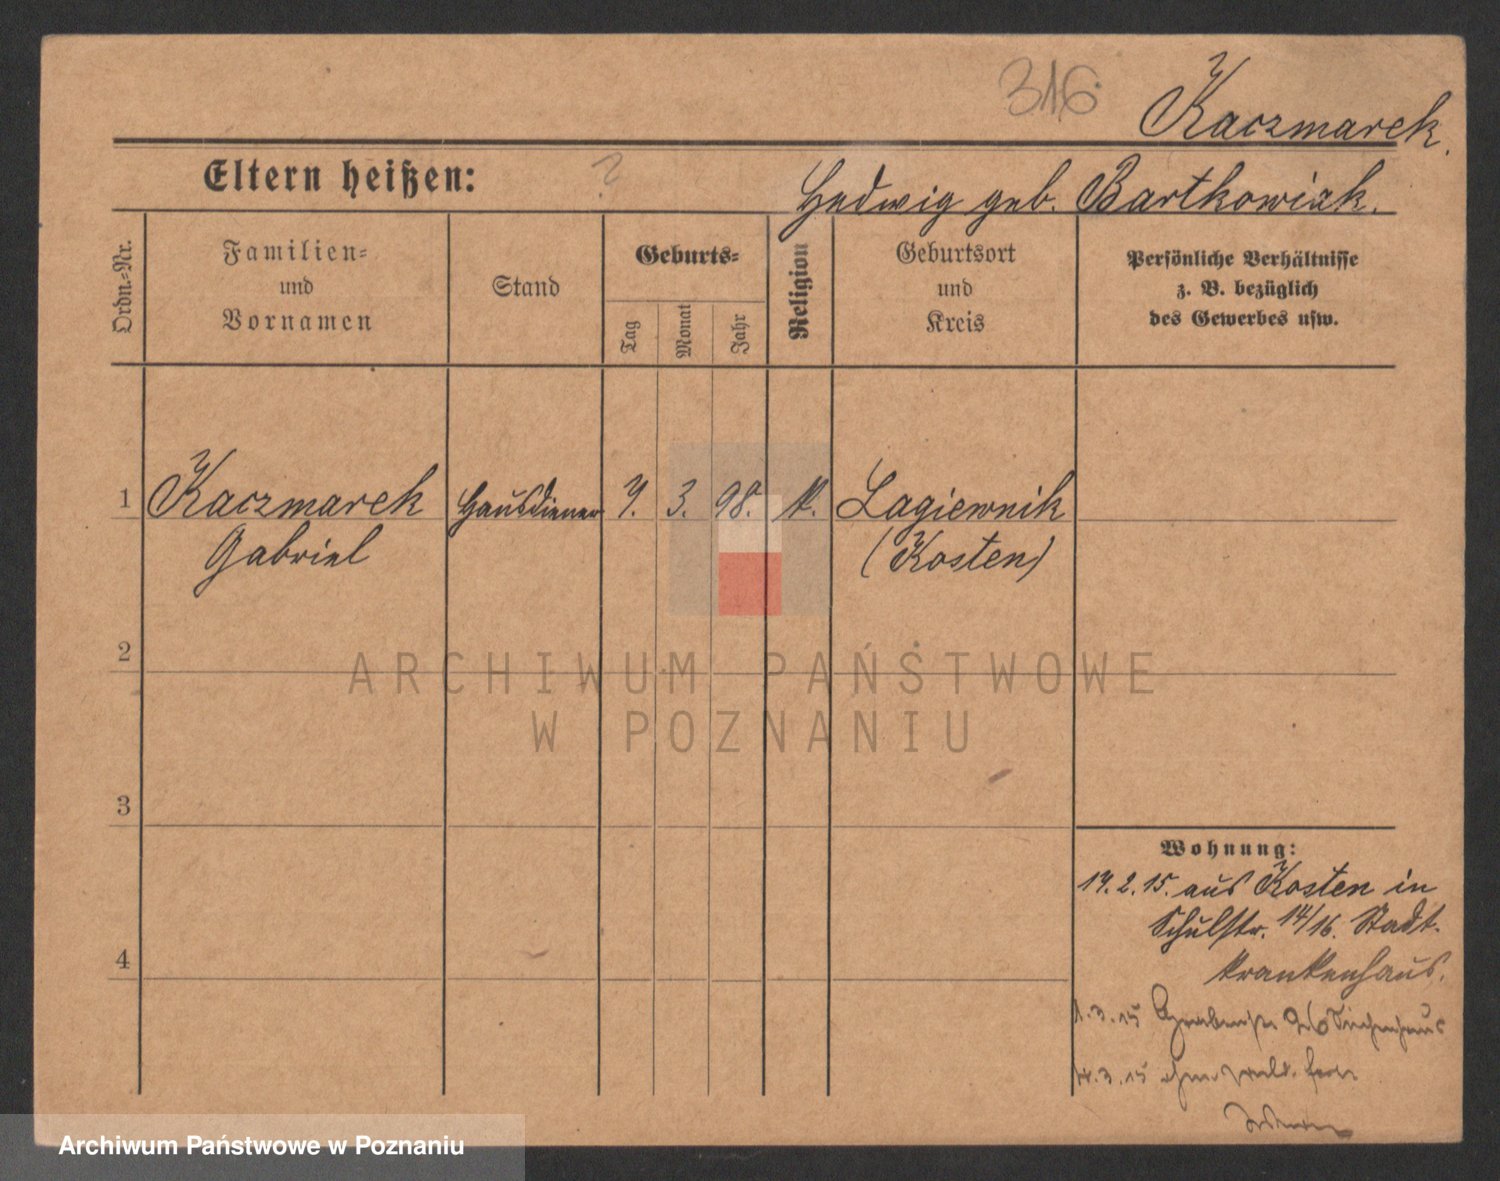 316
Kaczmarek.
Eltern heißen: ?
Hedwig geb. Bartkowiak.
Ordn.-Nr.
Familien-
und
Vornamen
Stand
Geburts-
Tag
Monat
Jahr
Religion
Geburtsort
und
Kreis
Persönliche Verhältnisse
z. B. bezüglich
des Gewerbes usw.
1 Kaczmarek Hausdiener 7. 3. 98. k. Lagiewnik
Gabriel (Kosten)
2
ARCHIWUM PAŃSTWOWE
W POZNANIU
3
Wohnung:
14.2.15. aus Kosten in
Schulstr. 14/16. Stadt-
krankenhaus.
4
1.3.15 Siechenhaus
14.3.15
Archiwum Państwowe w Poznaniu